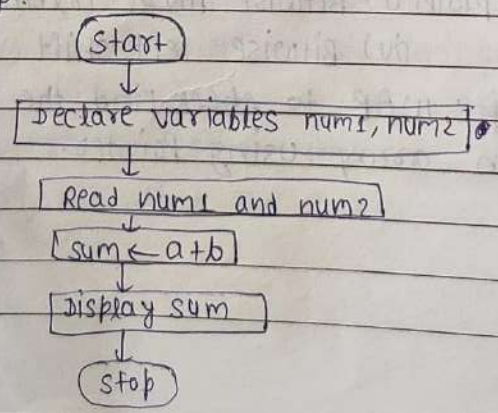 Start
Declare variables num1, num2
Read num1 and num2
sum ← a+b
Display sum
Stop